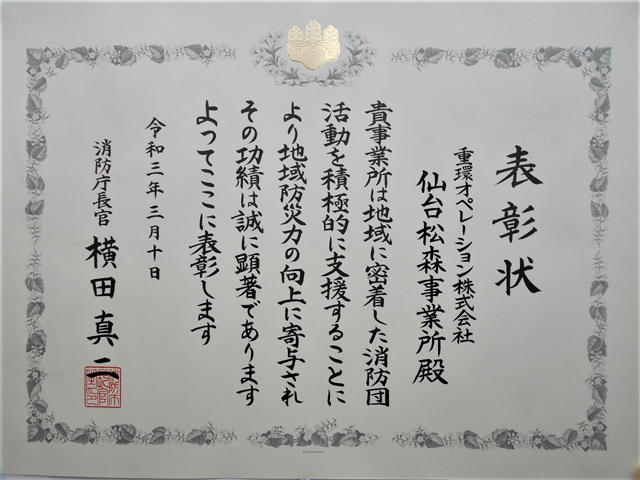 表彰状
重環オペレーション株式会社
仙台松森事業所殿
貴事業所は地域に密着した消防団
活動を積極的に支援することに
より地域防災力の向上に寄与され
その功績は誠に顕著であります
よってここに表彰します
令和三年三月十日
消防庁長官 横田真二